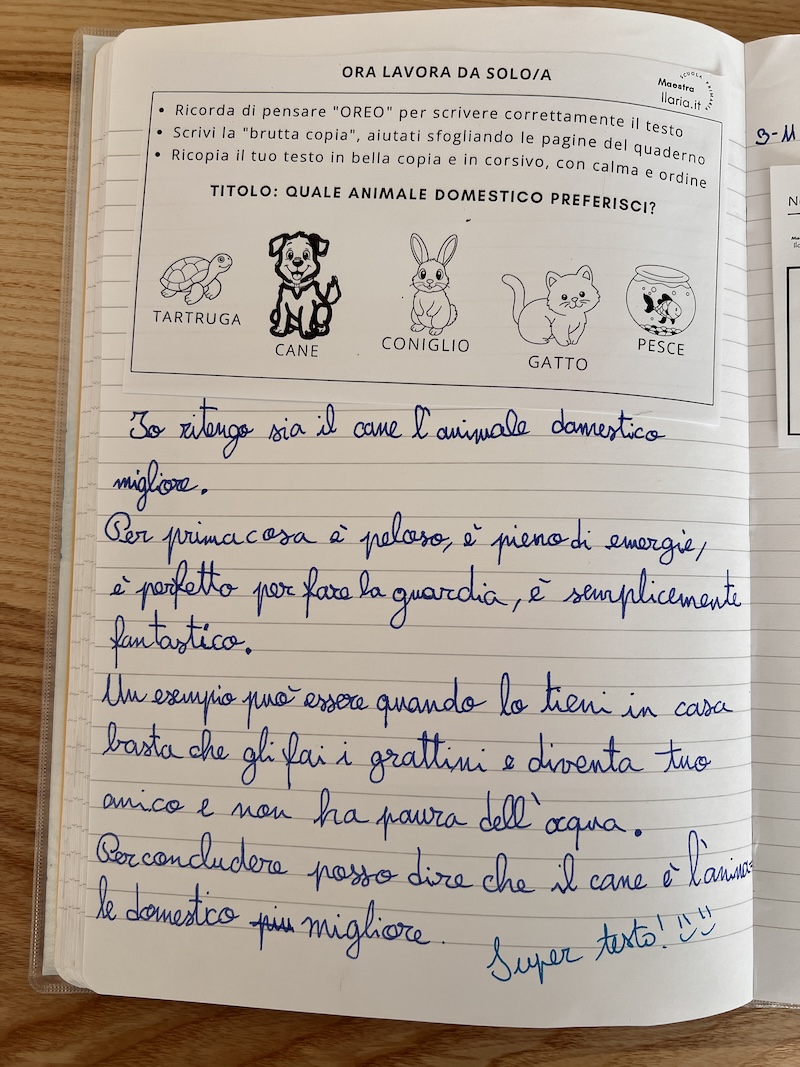 ORA LAVORA DA SOLO/A
SCUOLA PRIMARIA
Maestra
Ilaria.it
• Ricorda di pensare "OREO" per scrivere correttamente il testo
• Scrivi la "brutta copia", aiutati sfogliando le pagine del quaderno
• Ricopia il tuo testo in bella copia e in corsivo, con calma e ordine
TITOLO: QUALE ANIMALE DOMESTICO PREFERISCI?
TARTRUGA
CANE
CONIGLIO
GATTO
PESCE
Io ritengo sia il cane l'animale domestico
migliore.
Per prima cosa è peloso, è pieno di emergie,
è perfetto per fare la guardia, è semplicemente
fantastico.
Un esempio può essere quando lo tieni in casa
basta che gli fai i grattini e diventa tuo
amico e non ha paura dell'acqua.
Per concludere posso dire che il cane è l'anima=
le domestico più migliore.
Super testo!